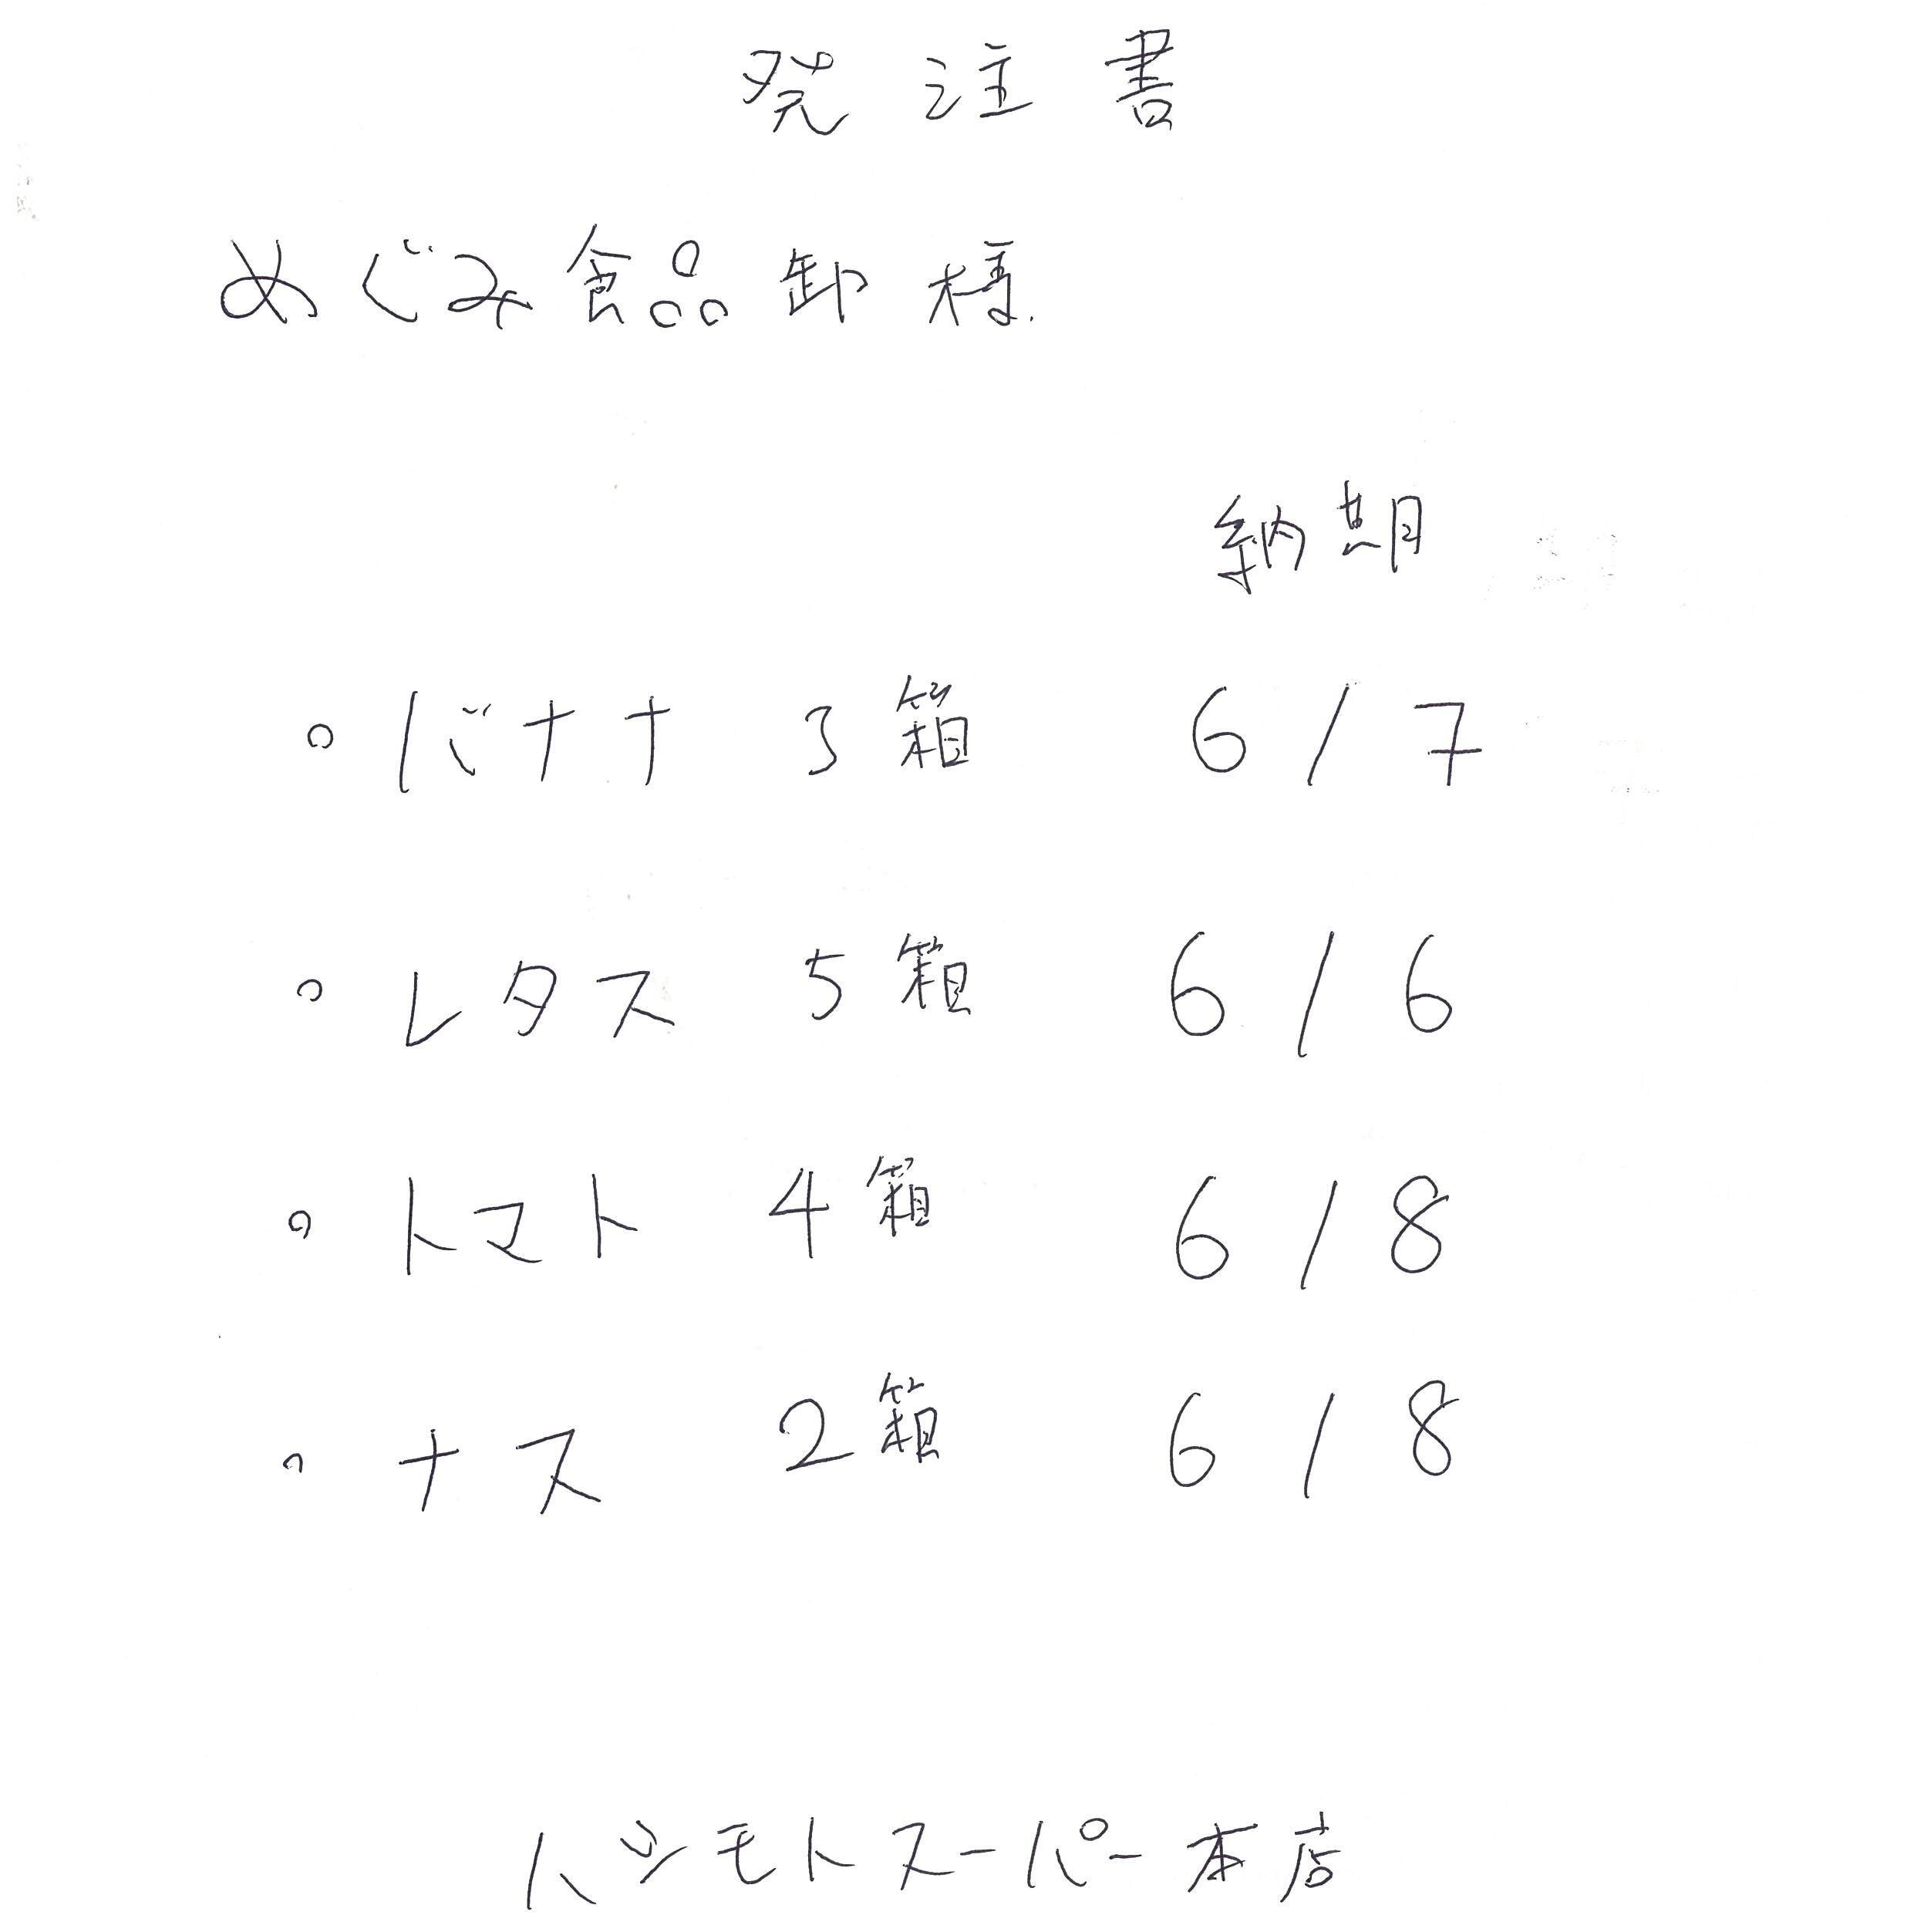 発注書
めぐみ食品卸様
納期
。バナナ 3箱 6/7
。レタス 5箱 6/6
。トマト 4箱 6/8
。ナス 2箱 6/8
ハシモトスーパー本店